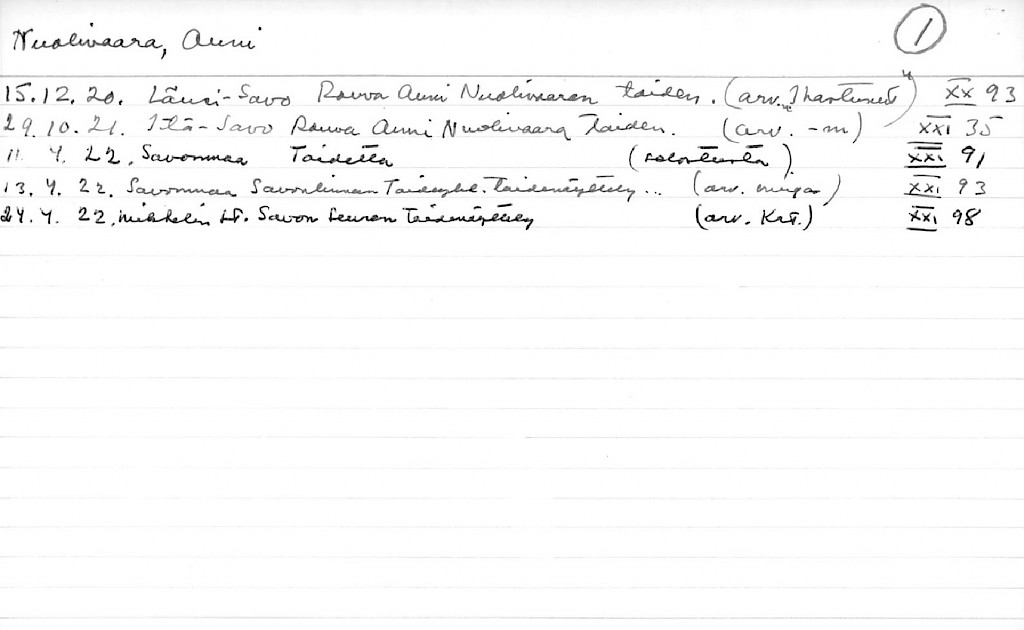 Nuolivaara, Auni 1
15.12.20. Länsi-Savo Rouva Auni Nuolivaaran taiden. (arv. "Ihastunut") XX 93
29.10.21. Itä-Savo Rouva Auni Nuolivaara Taiden. (arv. -m) XXI 35
11. 4. 22, Savonmaa Taidetta (selostusta) XXI 91
13. 4. 22. Savonmaa Savonlinnan taidenäyttely... (arv. XXI 93
24. 4. 22, Mikkelin Savon Seuran Taidenäyttely (arv. Krt.) XXI 98